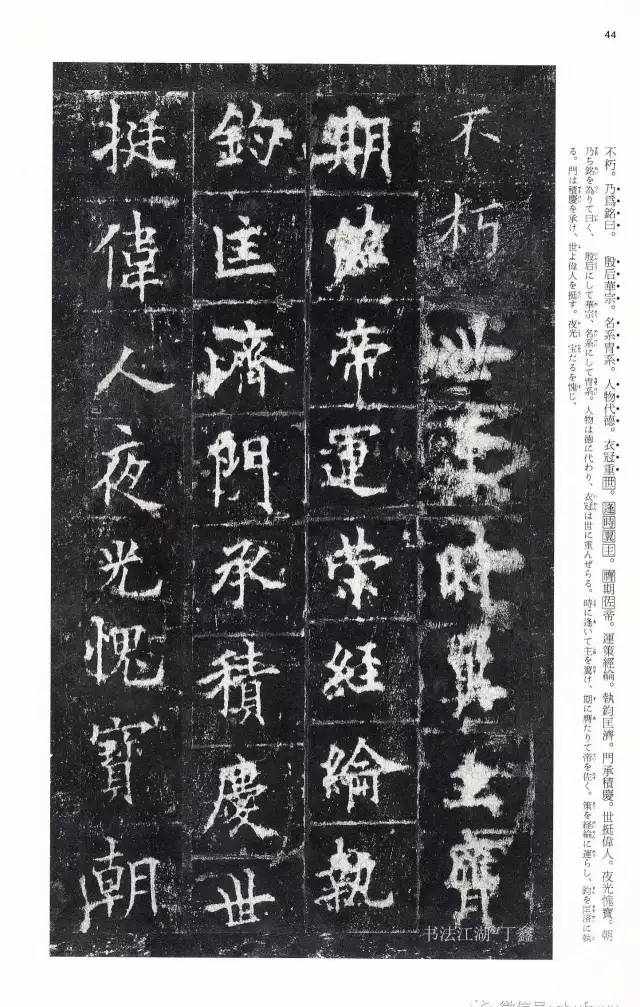 44
不朽。乃爲銘曰。 殷后華宗。名系冑系。人物代德。衣冠重世。逢時翼主。膺期佐帝。運策經綸。執鈞匡濟。門承積慶。世挺偉人。夜光愧寶。朝
乃ち銘を為りて曰く、 殷后にして華宗、名系にして冑系。人物は徳に代わり、衣冠は世に重んぜらる。時に逢いて主を翼け、期に膺たりて帝を佐く。策を経綸に運らし、鈞を匡済に執
る。門は積慶を承け、世よ偉人を挺す。夜光 宝たるを愧じ、
不朽世逢時翼主膺
期佐帝運策經綸執
鈞匡濟門承積慶世
挺偉人夜光愧寶朝
书法江湖 丁鑫